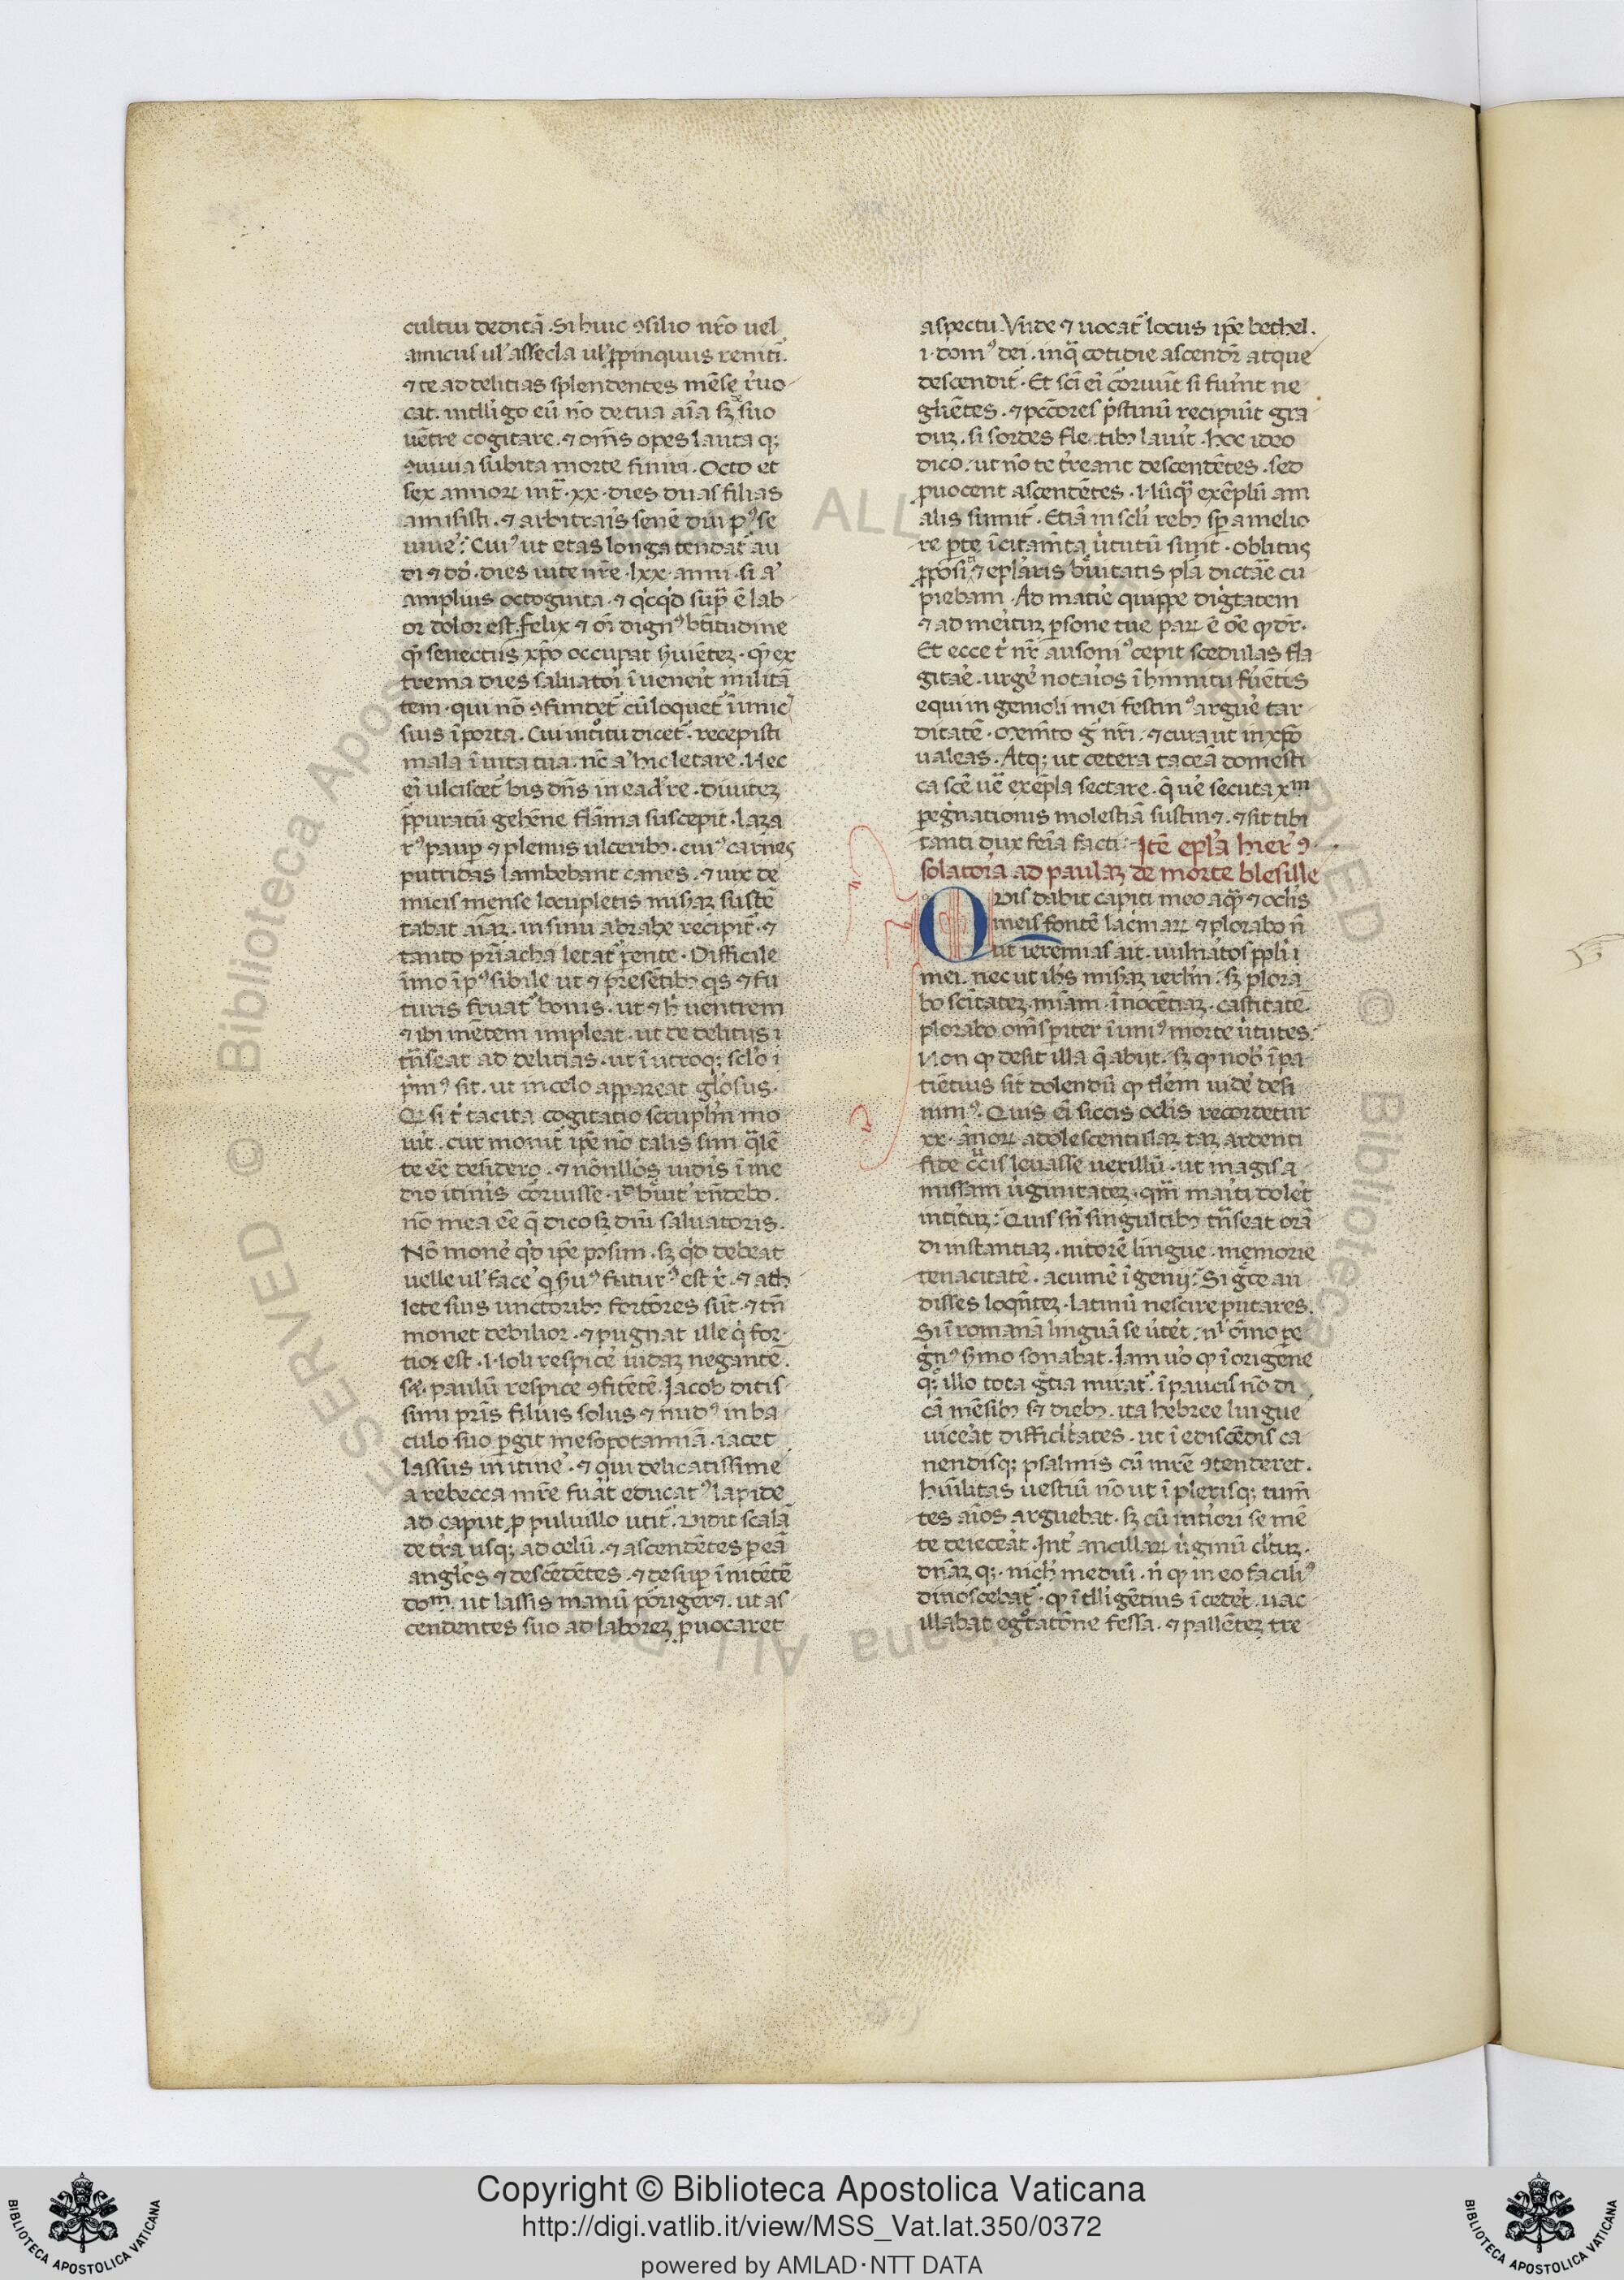 cultui deditā. Si huic ꝯsilio nr̄o uel
amicus ul' assecla ul' ꝓpinquus reniti᷑.
⁊ te ad delitias splendentes mēse r̓uo-
cat. intll̓igo eū nō de tua aīa sꝫ de suo
uētre cogitare. ⁊ om̄s opes lauta qꝫ
ꝯuiuia subita morte finiri. Octo et
sex annoꝝ int̄ᵃ .xx. dies duas filias
amisisti. ⁊ arbitraris senē diu pꝰse
uiue̓? Cuiꝰ ut etas longa tendat᷑ au
di ⁊ dd̓. dies uite nr̄e .lxx. anni. si a̓
amplius octoginta. ⁊ qͥcqͥd supᵃ ē lab
or dolor est. felix ⁊ oī dignꝰ btītudine
quē senectus xp̄o occupat ẜuiētez. quē ex
trema dies saluatoi īueneit militā
tem. qui nō ꝯfundet᷑ cū loquet᷑ īimic̓
suis īporta. Cui intͦitu dicet᷑. recepisti
mala ī uita tua. nc̄ a̓ hic letare. Nec
ei ulciscet᷑ bis dn̄s in eadē re. Diuitez
ꝑpuratū gehēne flāma suscepit. Laza
rꝰ paup̱ ⁊ plenus ulceribꝫ. cuiꝰ carnes
putridas lambebant canes. ⁊ uix de
micis mense locupletis misaz̓ sustē
tabat aīaz. in sinu abrahe recipit᷑. ⁊
tanto pr̄iacha letat᷑ pᵃente. Difficile
īmo īpꝰsibile ut ⁊ pr̄esētibꝫ qͥs ⁊ fu
turis fruat᷑ bonis. ut ⁊ hͥ uentrem
⁊ ibi mētem impleat. ut de delitijs ī
tn̄seat ad delitias. ut ī utroqꝫ scl̓o ī
pͥmꝰ sit. ut in celo appareat glōsus.
Qꝫ si tͥ tacita cogitatio scruplm̄ mo
uit. cur monit᷑ ipē nō talis sim qͣlē
te eē desidero. ⁊ nōnllōs uidis ī me
dio itinis cōruisse. id̓ bͤuit̓ rn̄debo.
nō mea eē q̄ dico sꝫ dn̄i saluatoris.
Nō mone̓ qͥd ipē possim. sꝫ qͥd debeat
uelle ul' face̓ q ẜuꝰ futurꝰ est xͥ. ⁊ ath
lete suis unctoribꝫ fortōres sūt. ⁊ tn̄
monet debilior. ⁊ pugnat ille qͥ for-
tior est. Noli respice̓ iudaz negantē.
sꝫ. paulū respice ꝯfitētē. Jacob ditis
simi pr̄is filius solus ⁊ nudꝰ in ba
culo suo ꝑgit mesopotamiā. iacet
lassus in itine̓. ⁊ qui delicatissime
a rebecca mr̄e fuāt educatꝰ lapide
ad caput ꝓ puluillo utit᷑. Vidit scalā
de tr̄a usqꝫ ad celū. ⁊ ascendētes ꝑ eā
angl̓os ⁊ descēdētes. ⁊ desup̱ īnitētē
dom̄. ut lassis manū poͬriger⁊. ut as
cendentes suo ad laborez ꝓuocaret
aspectu. Vnde ⁊ uocat᷑ locus ipē bethel.
i. domꝰ dei. in qᵃ cotidie ascendit᷑ atque
descendit᷑. Et scī eī cōruūt si fuīnt ne
glīetes. ⁊ pcc̄ores pͥstinū recipiūt gra
duz. si sordes fletibꝫ lauīt. Hoc ideo
dico. ut nō te tr̓eant descendētes. sed
ꝓuocent ascendētes. Nūqͣ exēplū am
alis sumit᷑. Etiā in scl̓i rebꝫ sp̱ a melio
re ꝑte īcitamta u̓tutū sunt. Oblitus
ꝓpōsiti ⁊ epl̓aris bͤuitatis pl̄a dictāe cu
piebam. Ad matie̓ quippe digͥtatem
⁊ ad meitūz ꝑsone tue paꝝ ē oē ꝙ dr̄.
Et ecce tͥ nr̄ ausoniꝰ cepit scedulas fla
gitāe. urge̓ notaios ī hinnitu fuētis
equi ingenioli mei festinꝰ argue̓ tar
ditatē. Memto gͥ nr̄i. ⁊ cura ut in xp̄o
ualeas. Atqꝫ ut cetera taceā domesti
ca scē ue̓ exēpla sectare. q̄ ue̓ secuta xm̄
ꝑegͥnationis molestiā sustin⁊. ⁊ sit tibi
tanti dux fēia facti. Itē epl̓a hier̓ ꝯ
solatoria ad paulaz de morte blesille
Quis dabit capiti meo aqͣ ⁊ oclīs
meis fontē lacͥmaꝝ ⁊ plorabo n̄
ut ieremias ait. uulnatos ppl̓i
mei. nec ut ihs̄ misaz ierlm̄. sꝫ plora
bo scītatez. mīam. īnocētiaz. castitatē.
plorabo om̄s ꝑiter ī uniꝰ morte u̓tutes.
Non ꝙ desit illa q̄ abijt. sꝫ ꝙ nob̓ īpa
tiētius sit dolendū ꝙ tlēm uide̓ desi
nimꝰ. Quis eī siccis oclīs recordetur
xx. ānoꝝ adolescentulaz tāz ardenti
fide crucis leuasse uexillū. ut magis a
missam uͥginitatez. qͣm maīti dole̓t
intitūz? Quis sn̄ singultibꝫ tn̄seat orā
di instantiaz. nitorē lingue. memorie
tenacitatē. acumē īgenij? Si gͬce au
disses loqn̄tez. latinū nescire putares.
Si ī romanā linguā se u̓tēt. nl̓ oīno pe
gͥnꝰ ẜmo sonabat. Jam uo̓ ꝙ ī origēne
qꝫ illo tota gͬtia mirat᷑. ī paucis nō di
cā mēsibꝫ sꝫ diebꝫ. ita hebree lingue
uiceāt difficlītates. ut ī ediscēdis ca
nendisqꝫ psalmis cū mr̄e ꝯtenderet.
humīlitas uestiū nō ut ī plerisqꝫ tum̄
tes aīos arguebat. sꝫ cū int̓iori se mē
te deieceāt. Int̓ ancillaꝝ uͥginū clīuz.
dn̄az qꝫ. nich̓ mediū. nͥ ꝙ in eo faciliꝰ
dinoscebat᷑. ꝙ ītll̓igētius īcede̓t. uac
illabat egͦtatōne fessa. ⁊ pallētez tre-
Copyright © Biblioteca Apostolica Vaticana
http://digi.vatlib.it/view/MSS_Vat.lat.350/0372
powered by AMLAD·NTT DATA